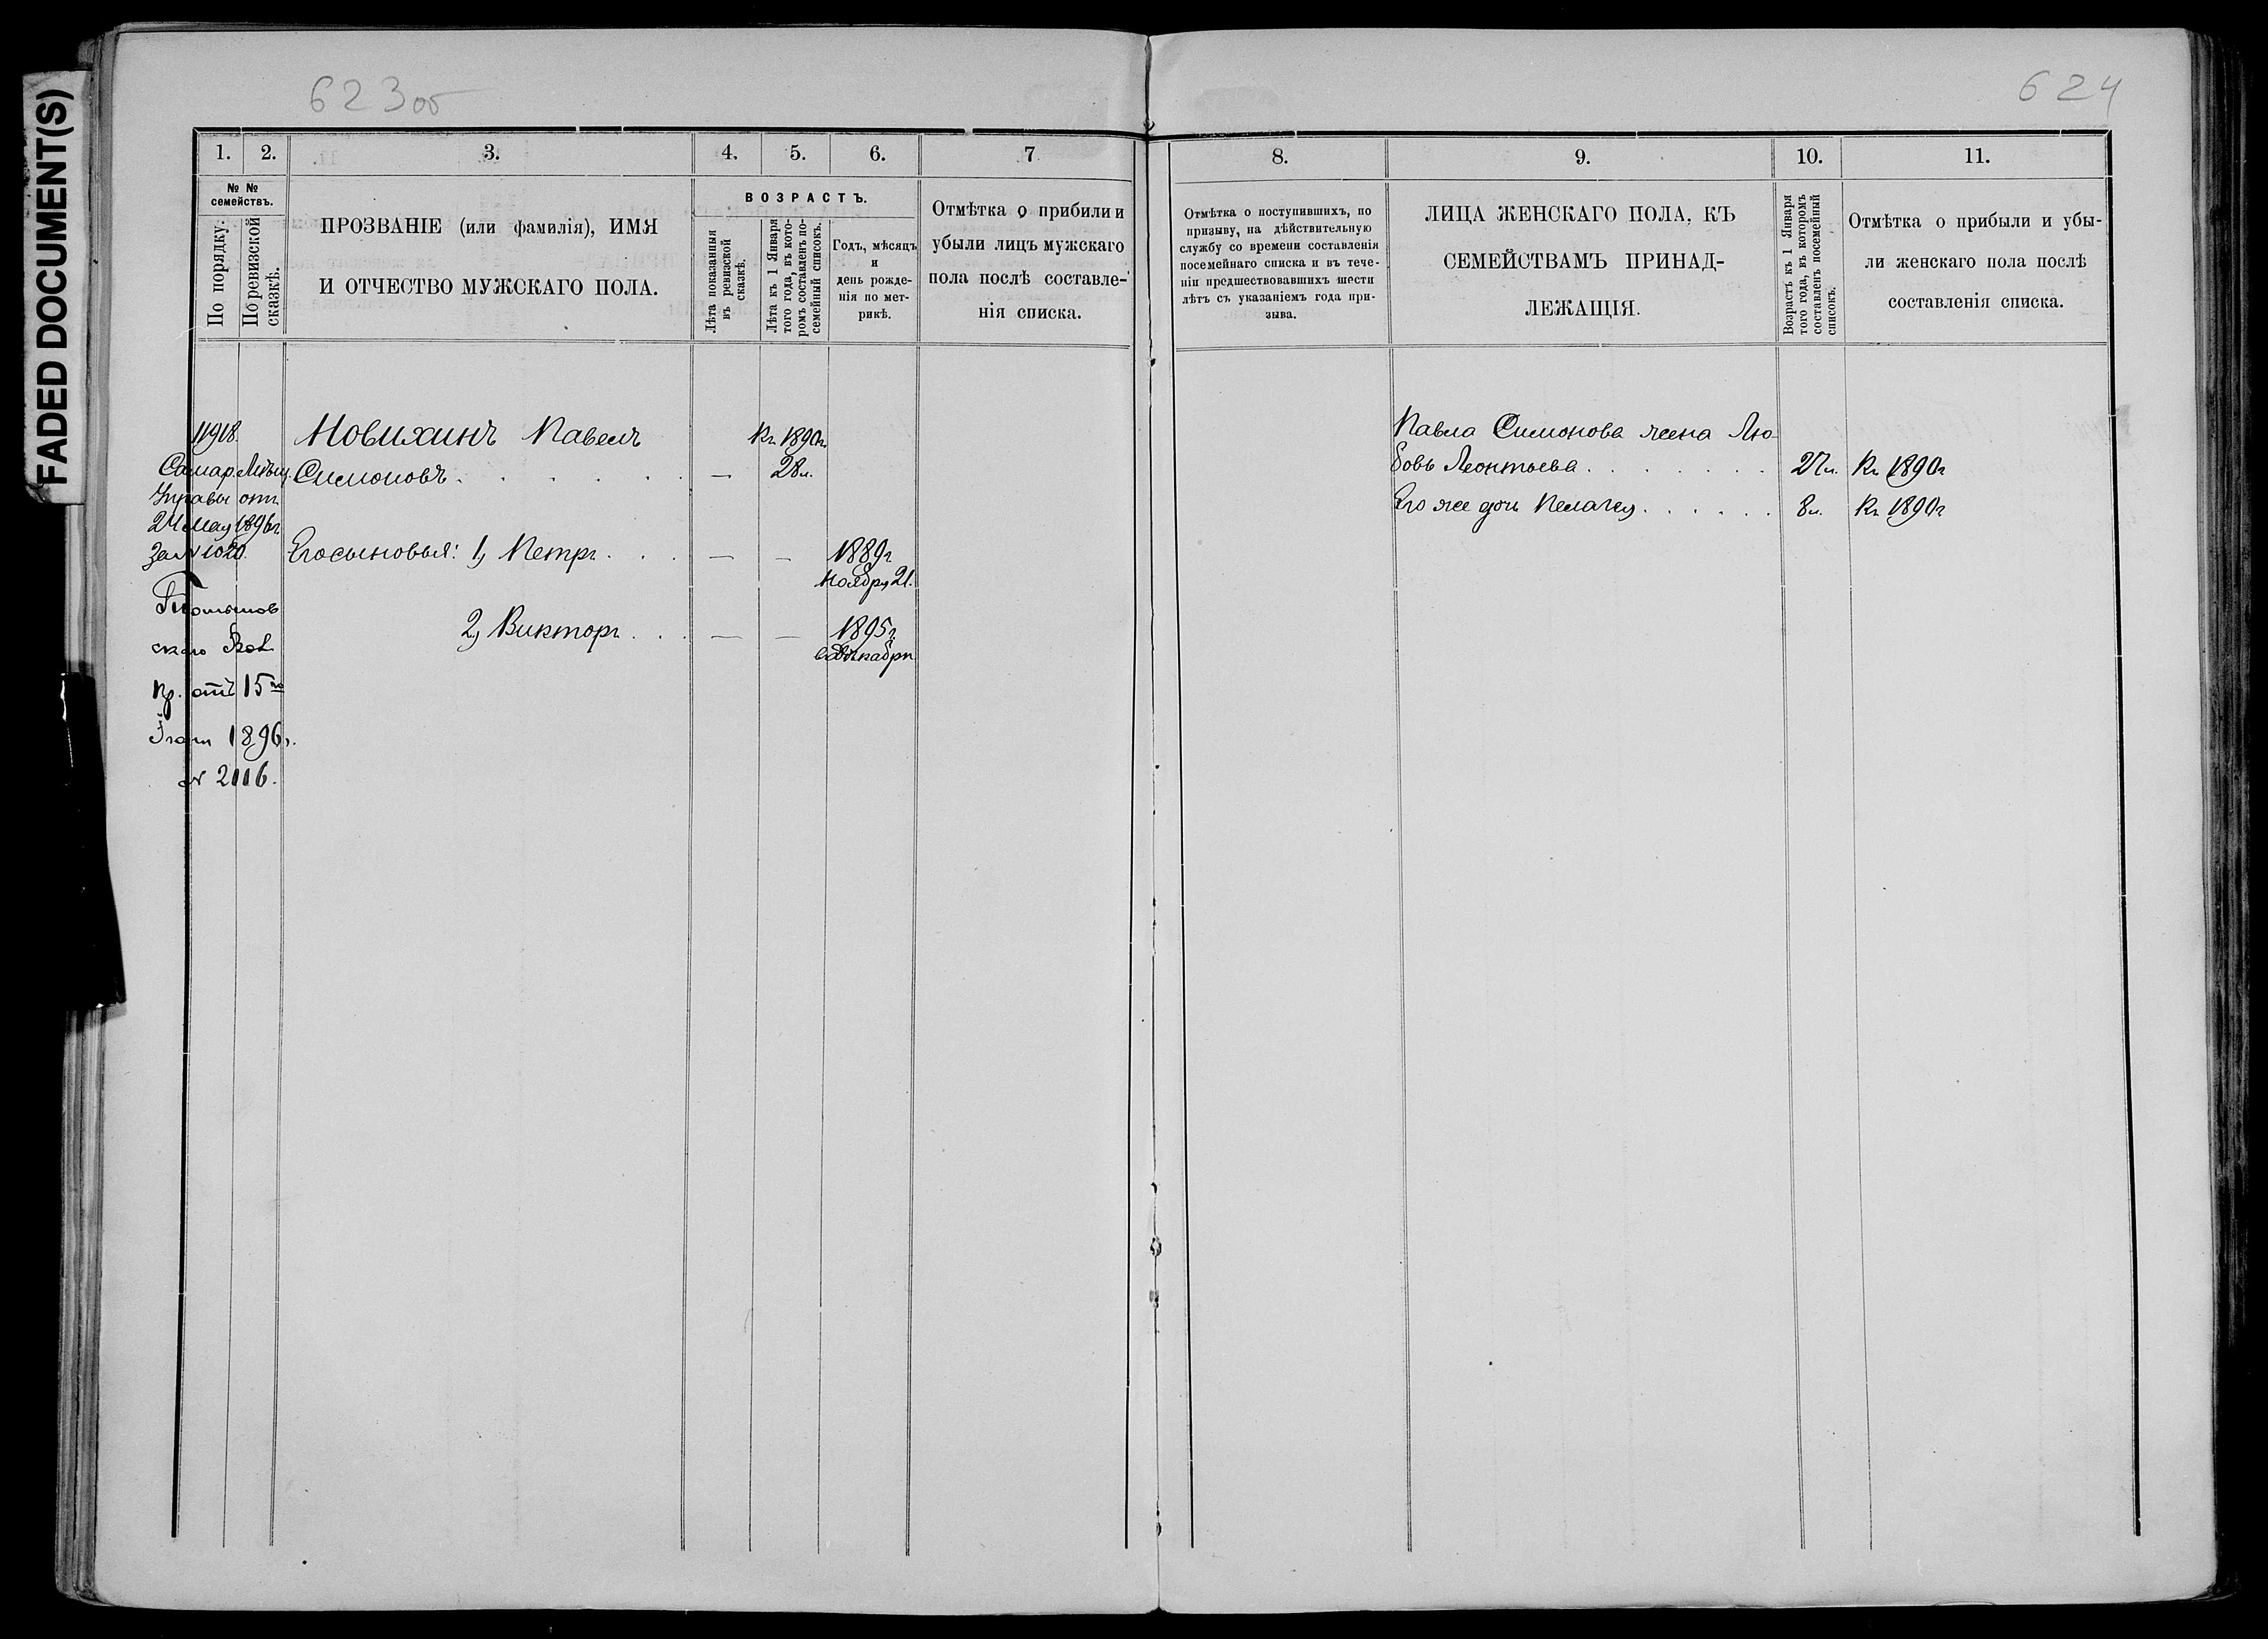 FADED DOCUMENT(S)
623 об
624
1.
2.
3.
4.
5.
6.
7
№ №
семействъ.
По порядку.
По ревизской
сказкѣ.
ПРОЗВАНІЕ (или фамилія), ИМЯ
И ОТЧЕСТВО МУЖСКАГО ПОЛА.
ВОЗРАСТЪ.
Лѣта показанныя
въ ревизской
сказкѣ.
Лѣта къ 1 Января
того года, въ кото-
ромъ составленъ по-
семейный списокъ.
Годъ, мѣсяцъ
и
день рожде-
нія по мет-
рикѣ.
Отмѣтка о прибили и
убыли лицъ мужскаго
пола послѣ составле-
нія списка.
8.
9.
10.
11.
Отмѣтка о поступившихъ, по
призыву, на дѣйствительную
службу со времени составленія
посемейнаго списка и въ тече-
ніи предшествовавшихъ шести
лѣтъ съ указаніемъ года при-
зыва.
ЛИЦА ЖЕНСКАГО ПОЛА, КЪ
СЕМЕЙСТВАМЪ ПРИНАД-
ЛЕЖАЩІЯ.
Возрастъ къ 1 Января
того года, въ которомъ
составленъ посемейный
списокъ.
Отмѣтка о прибыли и убы-
ли женскаго пола послѣ
составленія списка.
11918.
Самар. Мѣщ.
Управы отъ
24 Мая 1896 г.
за № 1020.
пр. отъ 15го
1896 г.
№ 2116.
Новихинъ Павелъ
Къ 1890 г.
Симоновъ . . . . . .
—
28 л.
Его сыновья: 1, Петръ . . .
—
—
1889 г.
Ноября 21.
2, Викторъ . . .
—
—
1895 г.
Декабря
Павла Симонова жена Лю-
бовь Леонтьева . . . . . . .
27 л.
Къ 1890 г
Его же дочь Пелагея . . . . . .
8 л.
Къ 1890 г